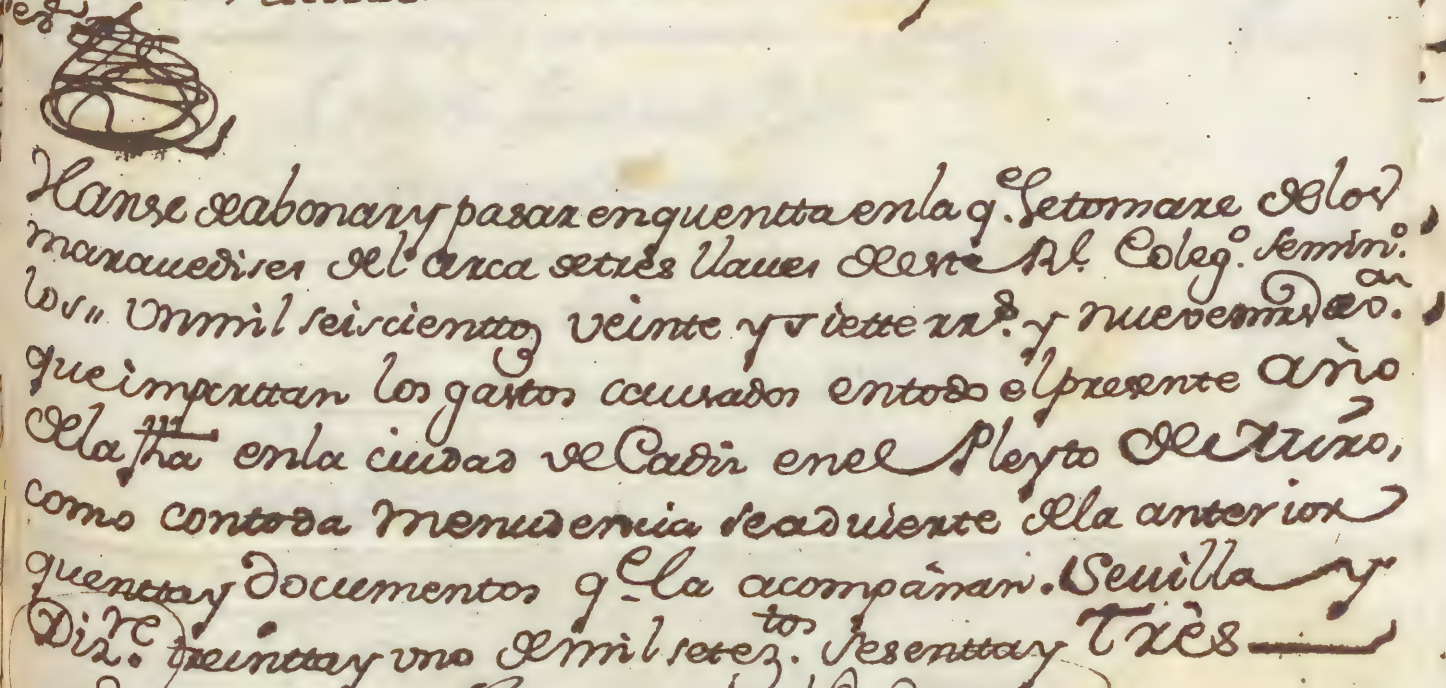 Hanse de abonar y pasar en quentta en la q.e Se tomare de los
marauedises del arca de três llaues de este Rl. Coleg.o Semin.o
los,, Un mil seiscienttos veinte y siette rr.s y nueve mrs de
que importtan los gastos caussados en todo el presente año
de la fha en la ciudad de Cadiz en el Pleyto de
como con toda menudencia se aduierte de la anterior
quentta y documentos q.e la acompañan. Seuilla y
Diz.re treintta y uno de mil setez.tos Sesentta y Três